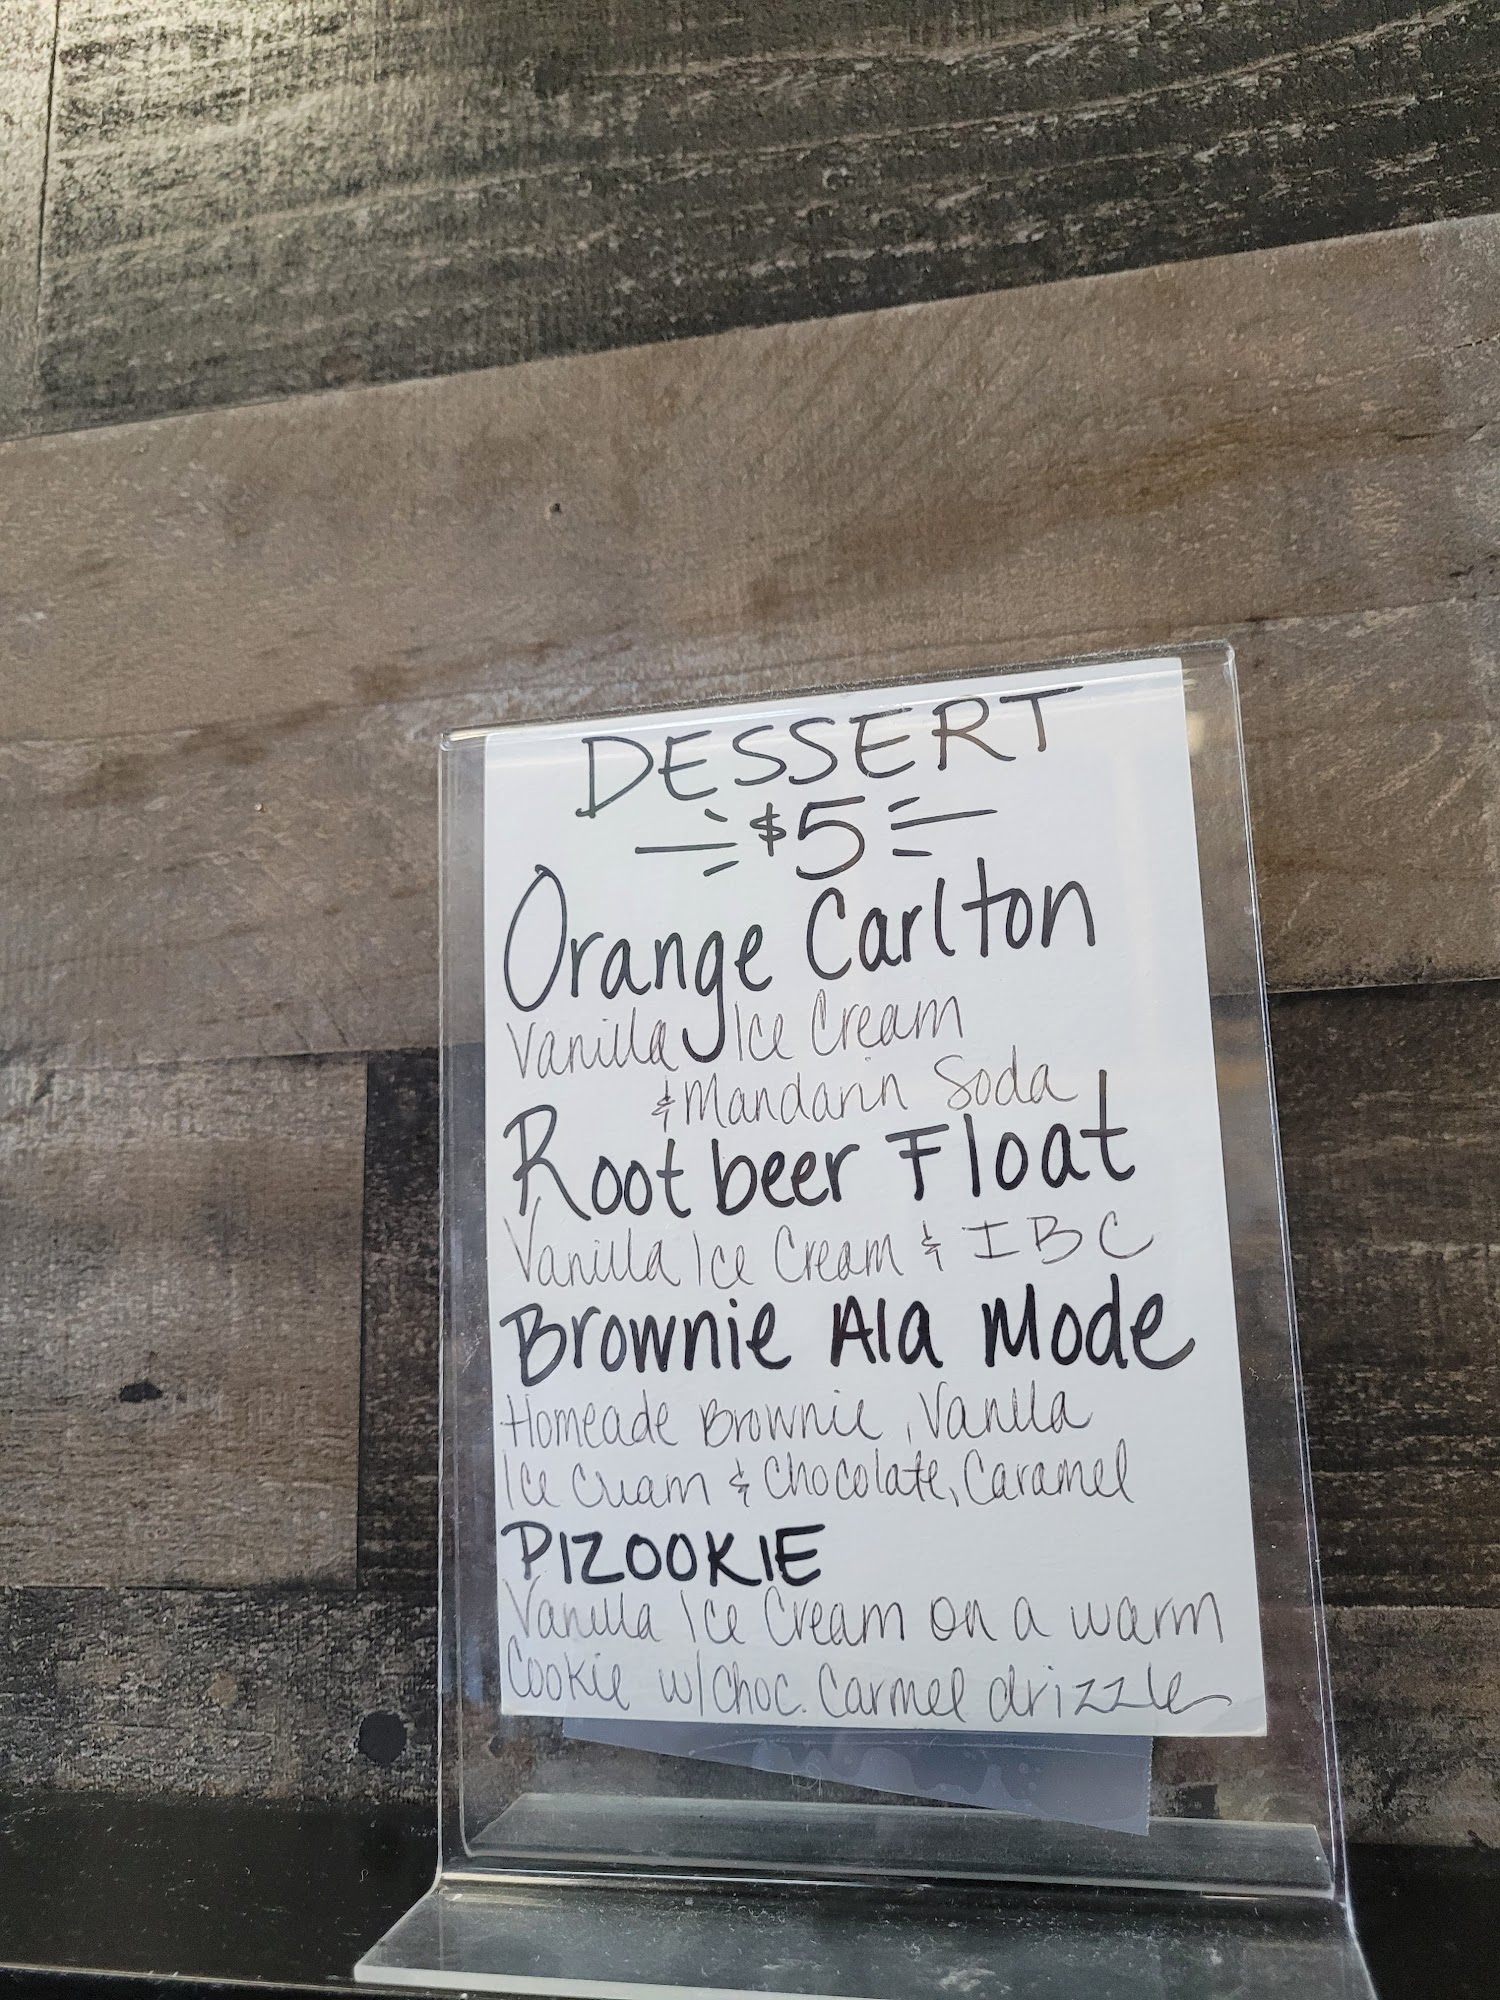 DESSERT
$5
Orange Carlton
Vanilla Ice Cream
& Mandarin Soda
Rootbeer Float
Vanilla Ice Cream & IBC
Brownie Ala Mode
Homeade Brownie, Vanilla
Ice Cream & Chocolate, Caramel
PIZOOKIE
Vanilla Ice Cream on a warm
Cookie w/choc. Carmel drizzle